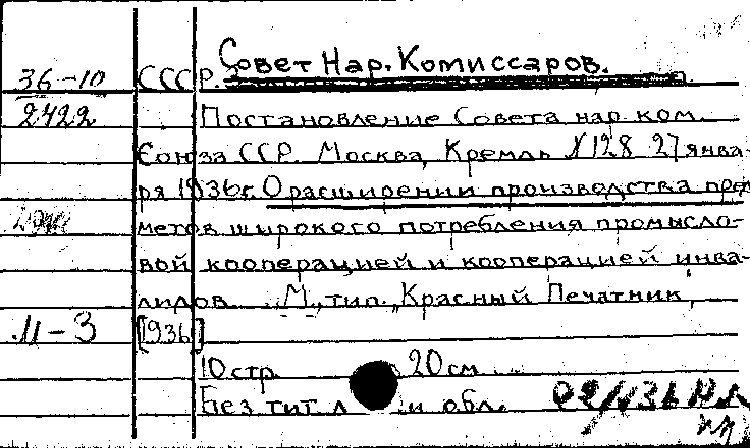 Совет Нар. Комиссаров.
36-10 СССР.
2422 Постановление Совета нар. ком.
Союза ССР. Москва, Кремль N128 27 янва-
ря 1936 г. О расширении производства пред
метов широкого потребления промысло-
вой кооперацией и кооперацией инва-
лидов. М., тип. "Красный Печатник",
11-3 [1936]
10 стр. 20 см.
Без тит. л. и обл.